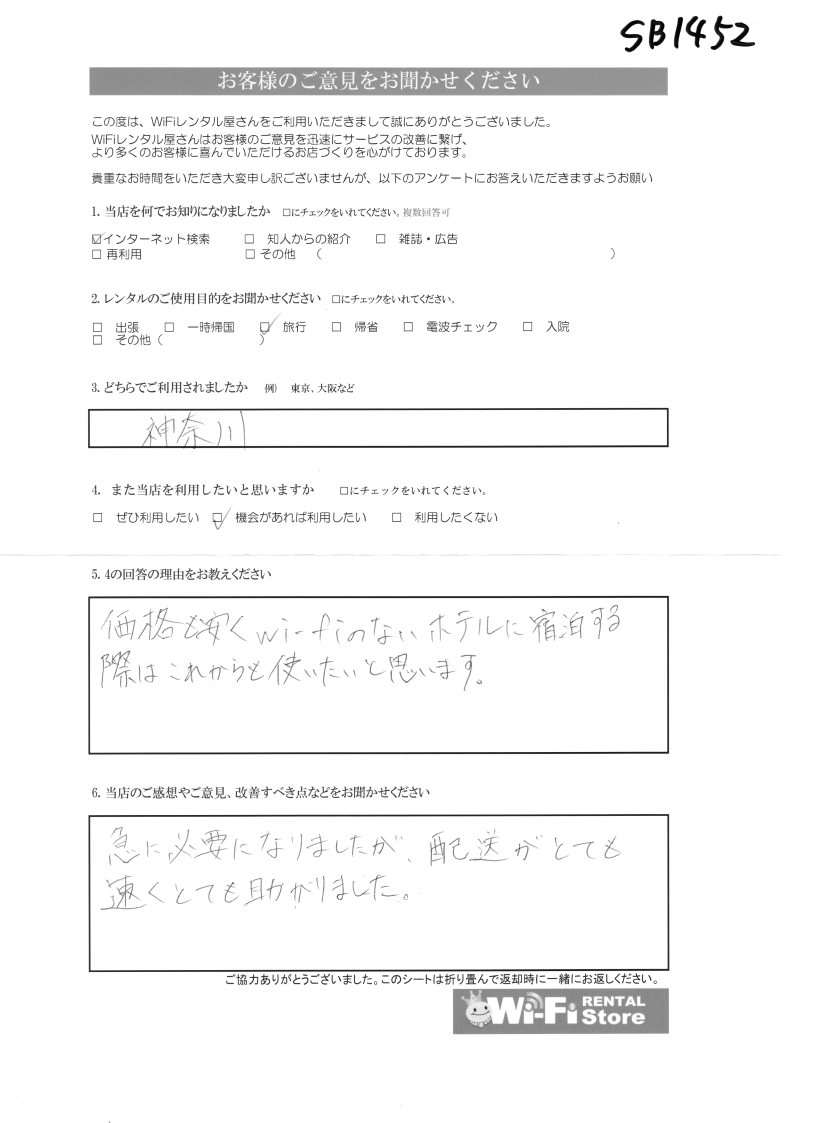 SB1452
お客様のご意見をお聞かせください
この度は、WiFiレンタル屋さんをご利用いただきまして誠にありがとうございました。
WiFiレンタル屋さんはお客様のご意見を迅速にサービスの改善に繋げ、
より多くのお客様に喜んでいただけるお店づくりを心がけております。
貴重なお時間をいただき大変申し訳ございませんが、以下のアンケートにお答えいただきますようお願い
1. 当店を何でお知りになりましたか □にチェックをいれてください。複数回答可
☑インターネット検索 □ 知人からの紹介 □ 雑誌・広告
□ 再利用 □ その他 （ ）
2. レンタルのご使用目的をお聞かせください □にチェックをいれてください。
□ 出張 □ 一時帰国 ☑ 旅行 □ 帰省 □ 電波チェック □ 入院
□ その他（ ）
3. どちらでご利用されましたか 例） 東京、大阪など
神奈川
4. また当店を利用したいと思いますか □にチェックをいれてください。
□ ぜひ利用したい ☑ 機会があれば利用したい □ 利用したくない
5. 4の回答の理由をお教えください
価格も安くwi-fiのないホテルに宿泊する
際はこれからも使いたいと思います。
6. 当店のご感想やご意見、改善すべき点などをお聞かせください
急に必要になりましたが、配送がとても
速くとても助かりました。
ご協力ありがとうございました。このシートは折り畳んで返却時に一緒にお返しください。
Wi-Fi RENTAL
Store